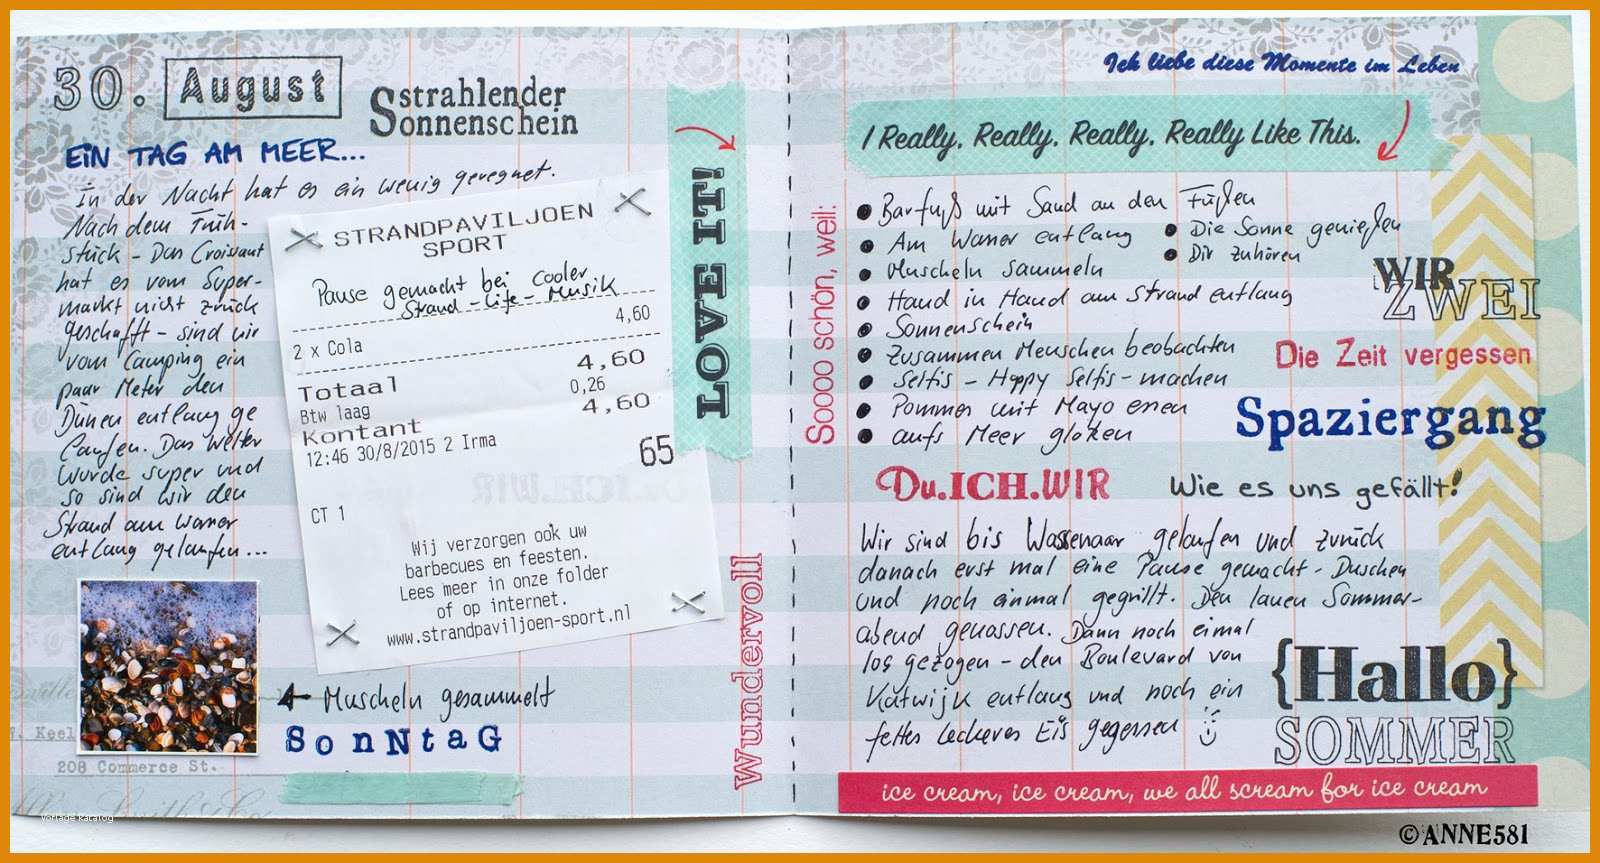 30. August
Sstrahlender
Sonnenschein
EIN TAG AM MEER...
In der Nacht hat es ein wenig geregnet.
Nach dem Früh-
stück - Das Croissant
hat es vom Super-
markt nicht zurück
geschafft - sind wir
vom Camping ein
paar Meter den
Dünen entlang ge
laufen. Das Wetter
wurde super und
so sind wir den
Strand am Wasser
entlang gelaufen...
STRANDPAVILJOEN
SPORT
Pause gemacht bei cooler
Strand-Life-Musik
4,60
2 x Cola
Totaal 4,60
Btw laag 0,26
Kontant 4,60
12:46 30/8/2015 2 Irma 65
CT 1
Wij verzorgen ook uw
barbecues en feesten.
Lees meer in onze folder
of op internet.
www.strandpaviljoen-sport.nl
LOVE IT!!
Muscheln gesammelt
SonNtaG
208 Commerce St.
Vorlage Katalog
Wundervoll
Ich liebe diese Momente im Leben
I Really, Really, Really, Really Like This.
Soooo schön, weil:
• Barfuß mit Sand an den Füßen
• Am Wasser entlang • Die Sonne genießen
• Muscheln sammeln • Dir zuhören
• Hand in Hand am Strand entlang
• Sonnenschein
• Zusammen Menschen beobachten
• Selfis - Happy Selfis - machen
• Pommes mit Mayo essen
• aufs Meer glotzen
WIR
ZWEI
Die Zeit vergessen
Spaziergang
Du.ICH.WIR Wie es uns gefällt!
Wir sind bis Wassenaar gelaufen und zurück
danach erst mal eine Pause gemacht - Duschen
und noch einmal gegrillt. Den lauen Sommer-
abend genossen. Dann noch eimal
los gezogen - den Boulevard von
Katwijk entlang und noch ein
fettes leckeres Eis gegessen
{Hallo}
SOMMER
ice cream, ice cream, we all scream for ice cream
©ANNE581